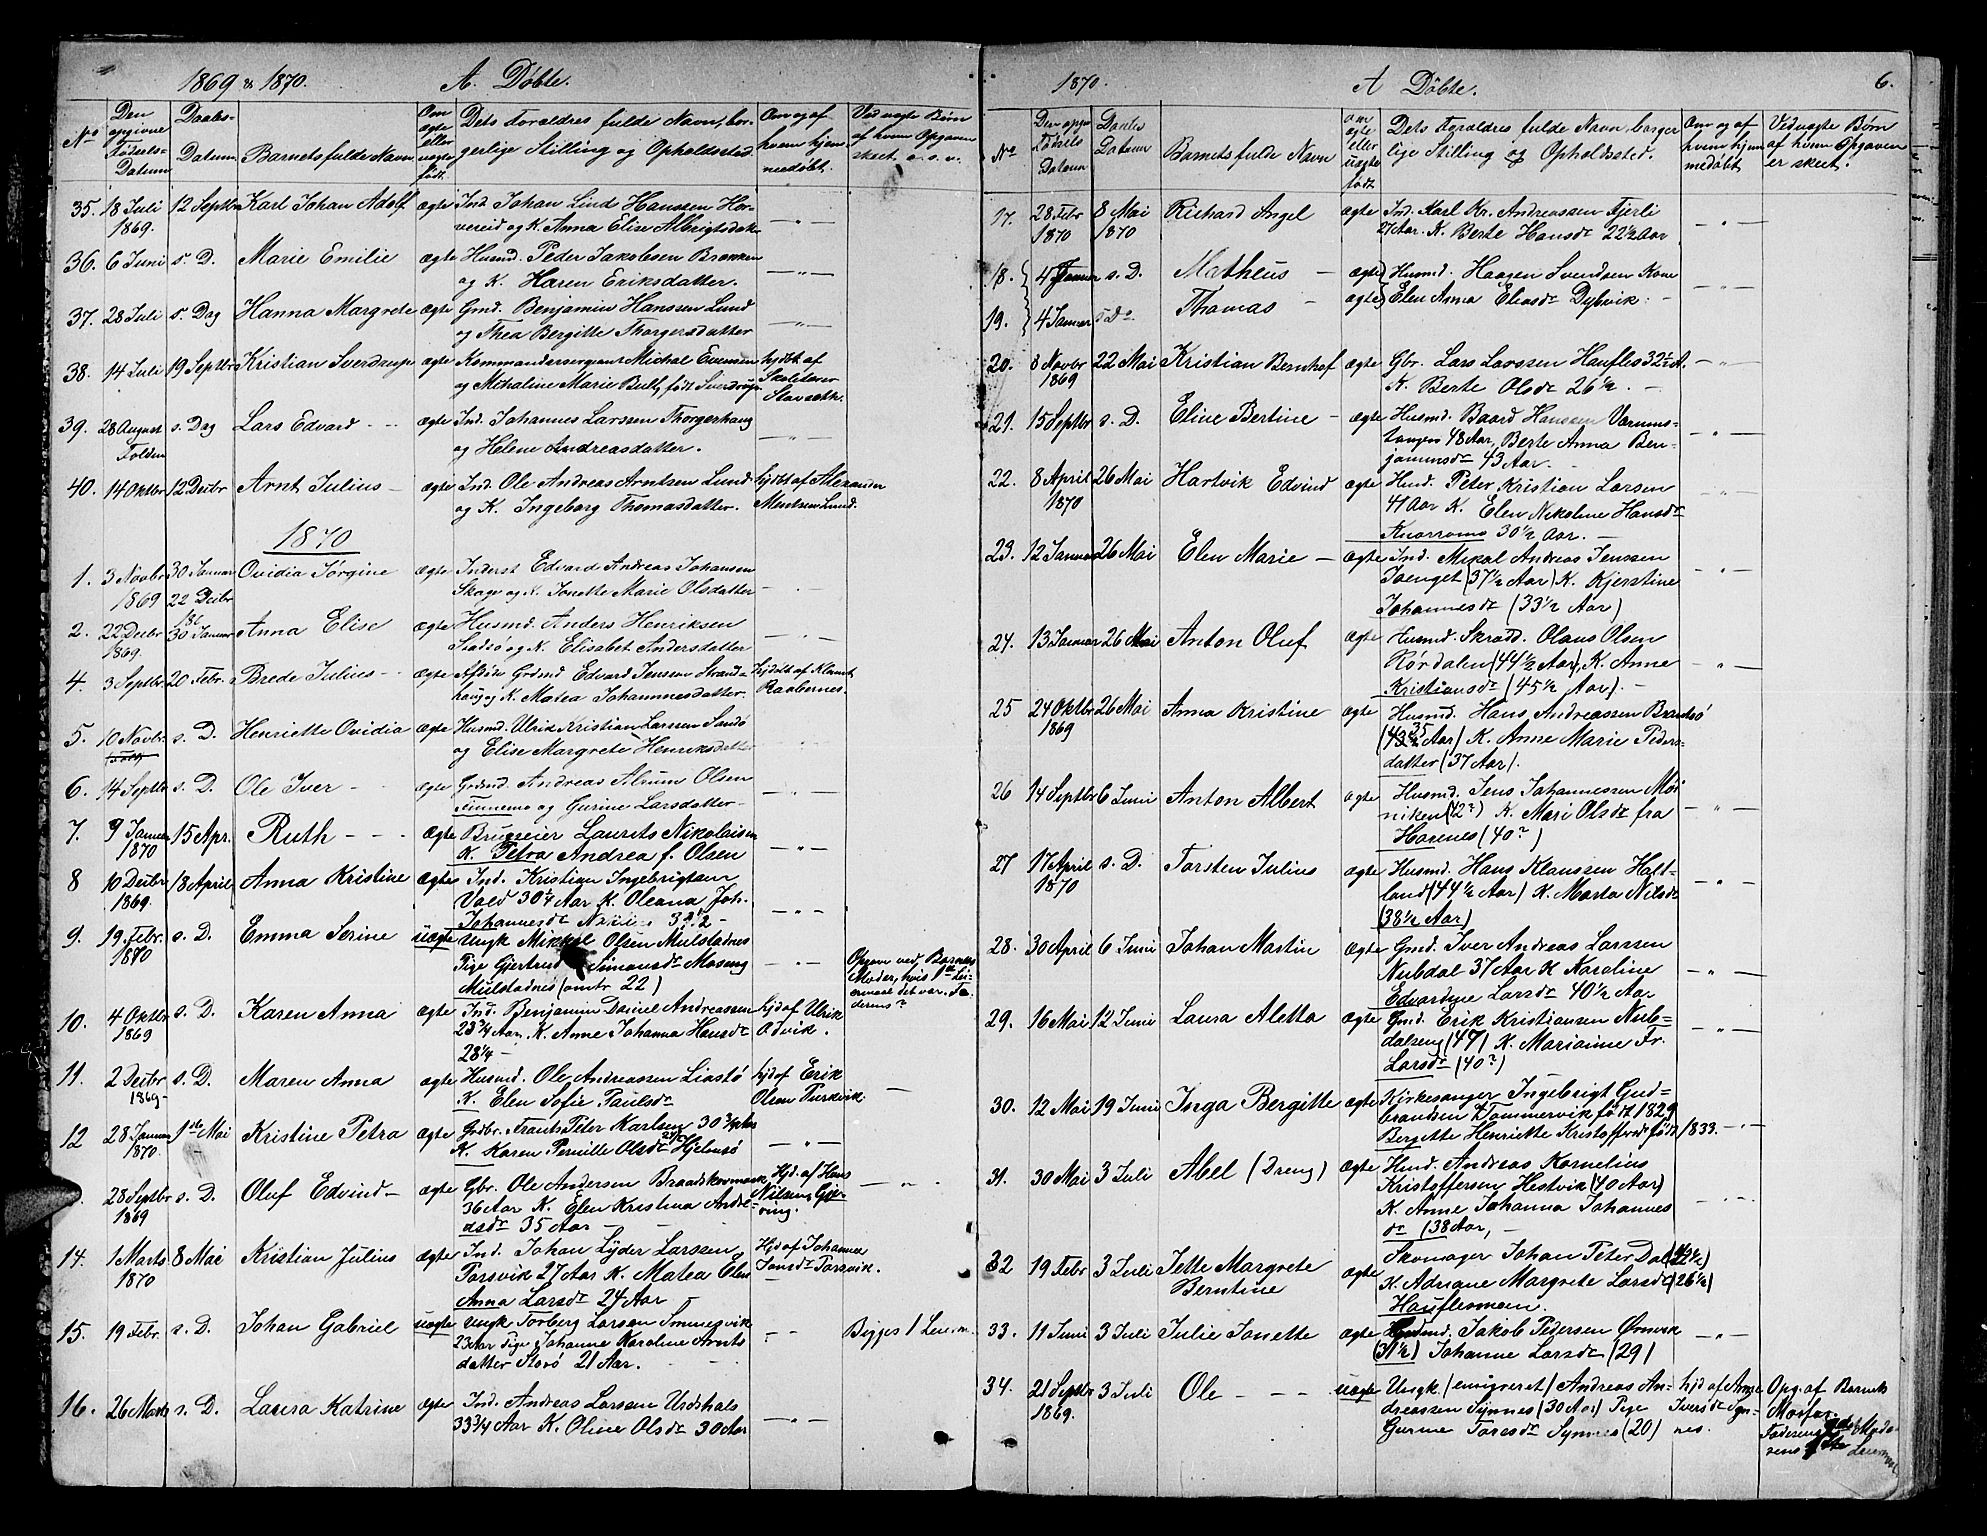 1869 & 1870. A. Döbte.
No
Den opgivne Fødsels-Datum
Daabs-Datum
Barnets fulde Navn
Om ægte eller uægte født.
Dets Forældres fulde Navn, borgerlige Stilling og Opholdssted.
Om og af hvem hjemmedøbt.
Ved uægte Børn af hvem Opgaven skeet o.s.v.
35. 18 Juli 1869. 12 Septbr Karl Johan Adolf ægte Ind. Johan Lind Hanssen Hor-
vereid og K. Anna Elise Albrigtsdatr — " —
36. 6 Juni s. D. Marie Emilie ægte Husmd. Peder Jakobsen Brakken
og K. Haren Eriksdatter. — " —
37. 28 Juli s. Dag Hanna Margrete ægte Gmd. Benjamin Hanssen Lund
og Thea Bergitte Thorgersdatter — " —
38. 14 Juli 19 Septbr Kristian Sverdrup ægte Kommandersergeant Michal Evensen hjdbt af
og Michaline Marie Bull, født Sverdrup Skolelærer
39. 28 August s. Dag Lars Edvard - - ægte Ind. Johannes Larssen Thorgerhaug
Folden og Helene Andreasdatter. — " —
40. 14 Oktbr 12 Decbr Arnt Julius — ægte Ind. Ole Andreas Arntsen Lund hjdbt af
og K. Ingeborg Thomasdatter. Lund.
1870
1. 3 Novbr 1869 30 Januar Ovidia Jørgine ægte Inderst Edvard Andreas Johansen
22 Decbr Skage og K. Jonette Marie Olsdatter — " —
2. 22 Decbr 1869. 30 Januar Anna Elise ægte Husmd. Anders Henriksen
Stadsø og K. Elisabet Andersdatter — " —
4. 3 Septbr 20 Febr. Brede Julius - - ægte Afdøde Grdmd Edvard Jenssen Strand- hjdbt af
haug og K. Matea Johannesdatter.
5. 10 Novbr. s. D. Henriette Ovidia ægte Husmd. Ulrik Kristian Larssen Sandø
og Elise Margrete Henriksdatter
6. 14 Septbr s. D. Ole Iver - ægte Grdmd. Andreas Olsen
Finnemo og Gurine Larsdatter - — " —
7. 9 Januar 1870 15 Apr. Ruth - - - ægte Laurits Nikolaisen
K. Petra Andrea f. Olsen — " —
8 10 Decbr 1869. 18 April Anna Kristine ægte Ind. Kristian Ingebrigtsen
Vold 30¼ Aar K. Oleana Joh.
Johannesdr — " —
9. 19 Febr. 1870 s. D. Emma Serine uægte Ungk Mikkel Olsen Mulstadnes
Pige Gjertrud Simonsdr Moseng — " — Opgave ved Barnets
Mulstadnes (omtr 22) Moder, hvis 1ste Lei-
ermaal det var. Fa-
derens?
10. 4 Oktbr 1869 s. D. Karen Anna ægte Ind. Benjamin Daniel Andreassen hj af Ulrik
23¾ Aar, K. Anne Johanna Hansdr Odvik.
28¼ -
11. 2 Decbr 1869- s. D. Maren Anna ægte Husmd. Ole Andreassen Liastø hjd af Erik
K. Elen Sofie Paulsdr Olsen
12 28 Januar 1870. 1ste Mai Kristine Petra ægte Grdbr. Frants Peter Karlsen 30¾ Aar
K. Karen Pernille Olsdr Hjelmsø — " —
28 Septbr 1869 s. D. Oluf Edvind - ægte Gbr. Ole Andersen Braadskovmark Hjd. af Hans
36 Aar K. Elen Kristina Nilsen
dsdr 35 Aar —
14. 1 Marts 1870 8 Mai Kristian Julius ægte Ind. Johan Lyder Larssen Hjd af Johanna
Torsvik 27 Aar K. Matea Elen Jonsdr Torsvik.
Anna Larsdr 24 Aar
15. 19 Febr. s. D. Johan Gabriel uægte Ungk Torberg Larsen
23 Aar Pige Johanne Karoline Arnts — " — Begges 1 Leierm.
datter Storø 21 Aar.
16. 26 Marts s. D. Laura Katrine ægte Ind. Andreas Larssen Urdshals
33¾ Aar K. Oline Olsdr 30 Aar — " —
1870. A Döbte. 6.
No
Den opgiv Fødsels Datum
Daabs Datum
Barnets fulde Navn
Om ægte eller uægte født
Dets Forældres fulde Navn, borger
lige Stilling og Opholdssted.
Om og af hvem hjemmedøbt
Ved uægte Børn af hvem Opgaven er skeet.
17. 28 Febr 1870 8 Mai 1870 Richard Angel ægte Ind. Karl Kr. Andreassen Fjerli
27 Aar. K. Berte Hansdr 22½ Aar — " —
18. 4 Januar s. D. Matheus — ægte Husmd. Haagen Svendsen Kone
19. 4 Januar s. D. Thomas — ægte Elen Anna Eliasdr Dybvik. - — " —
20. 8 Novbr 1869 22 Mai Kristian Bernhof ægte Gbr. Lars Larssen Haufles 32½ A.
K. Berte Olsdr 26½. — — " —
21. 15 Septbr s. D. Eline Bertine - ægte Husmd. Baard Hanssen Værums-
tangen 48 Aar, Berte Anna Ben-
jaminsdr 43 Aar. — — " —
22. 8 April 1870 26 Mai Hartvik Edvind ægte Husd. Peter Kristian Larsen
41 Aar K. Elen Nikoline Hansdr
30½ Aar. — — " —
23. 12 Januar 26 Mai Elen Marie — ægte Ind. Mikal Andreas Jenssen
(37½ Aar) K. Kjerstine
Johannesdr (33½ Aar) — " —
24. 13 Januar 26 Mai Anton Oluf ægte Husmd. Skrædd. Olaus Olsen
Rørdalen (44½ Aar), K. Anne
Kristiansdr (45½ Aar). — — " —
25 24 Oktbr 1869 26 Mai Anna Kristine ægte Husmd. Hans Andreassen Brandsø
(43½ Aar) K. Anne Marie Peders-
datter (37 Aar). — " —
26 14 Septbr 6 Juni Anton Albert ægte Husmd. Jens Johannessen Møi
niken (42?) K. Mari Olsdr fra
Horenes (40?) — " —
27 17 April 1870 s. D. Torsten Julius ægte Husmd. Hans Klaussen Haft-
land (44½ Aar) K. Marta Nilsdr
(38½ Aar) — " —
28. 30 April 6 Juni Johan Martin ægte Gmd. Iver Andreas Larssen
Nubdal 37 Aar K Karoline
Edvardine Larsdr 40½ Aar — " —
29. 16 Mai 12 Juni Laura Aletta ægte Gmd. Erik Kristiansen Nub-
dalseng (47) K. Marianne Fr.
Larsdr (40?) — " —
30. 12 Mai 19 Juni Inga Bergitte ægte Kirkesanger Ingebrigt Gud-
brandsen Tommervik født 1829
Bergette Henriette Kristoffersdr født 1833. — " —
31. 30 Mai 3 Juli Abel (Dreng) ægte Husd. Andreas Kornelius
Kristoffersen Hestvik (40 Aar)
K. Anne Johanna Johannes
dr (38 Aar, — — " —
32 19 Febr 3 Juli Jette Margrete Berntine ægte Skomager Johan Peter Dal (42½)
K. Adriane Margrete Larsdr (26½)
Hauflesmoen.
33. 11 Juni 3 Juli Julie Jonette ægte Husmd. Jakob Pedersen Ørnvik
(31½) Johanne Larsdr (29) — " —
34. 21 Septbr 1869. 3 Juli Ole — - - uægte Ungk. (emigreret) Andreas An- hjd af Anne Opg. af Barnets
dreassen Synnes (30 Aar) Pige Iversdr Syn- Morfar.
Gurine Toresdr Synnes (20) nes. Faderens